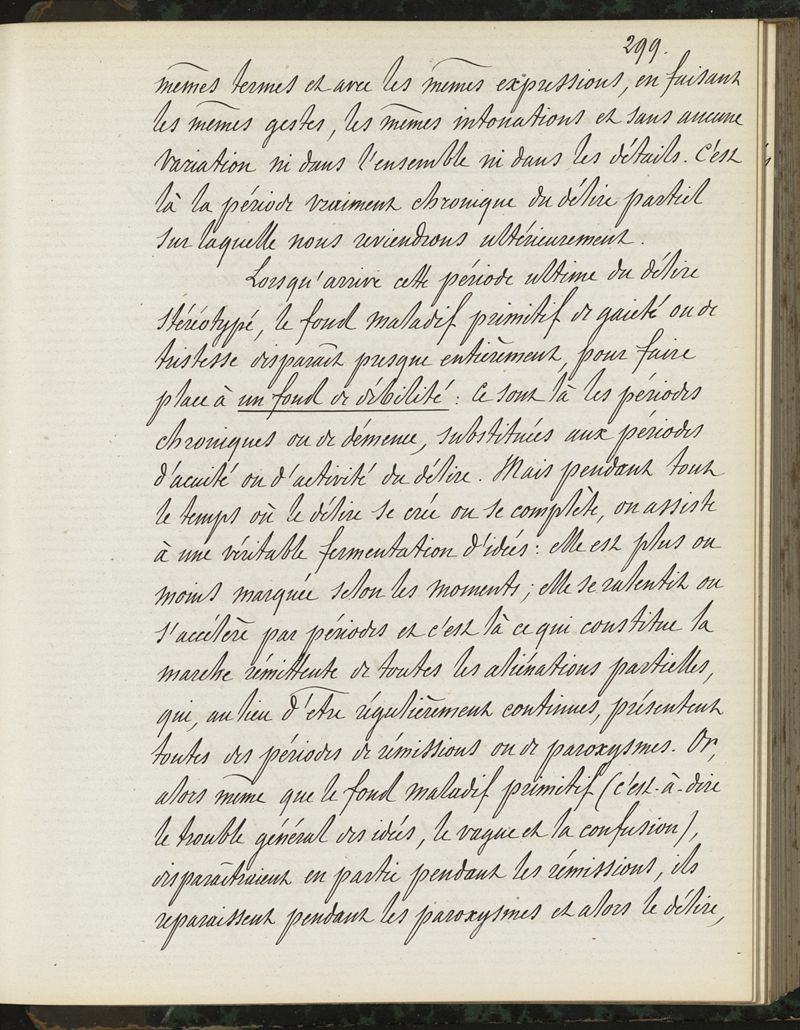 299.
mêmes termes et avec les mêmes expressions, en faisant
les mêmes gestes, les mêmes intonations et sans aucune
variation ni dans l'ensemble ni dans les détails. C'est
là la période vraiment chronique du délire partiel
sur laquelle nous reviendrons ultérieurement.
Lorsqu'arrive cette période ultime du délire
stéréotypé, le fond maladif primitif de gaieté ou de
tristesse disparaît presque entièrement, pour faire
place à un fond de débilité : Ce sont là les périodes
chroniques ou de démence, substituées aux périodes
d'acuité ou d'activité du délire. Mais pendant tout
le temps où le délire se crée ou se complète, on assiste
à une véritable fermentation d'idées : elle est plus ou
moins marquée selon les moments ; elle se ralentit ou
s'accélère par périodes et c'est là ce qui constitue la
marche rémittente de toutes les aliénations partielles,
qui, au lieu d'être régulièrement continues, présentent
toutes des périodes de rémissions ou de paroxysmes. Or,
alors même que le fond maladif primitif (c'est-à-dire
le trouble général des idées, le vague et la confusion),
disparaîtraient en partie pendant les rémissions, ils
reparaissent pendant les paroxysmes et alors le délire,